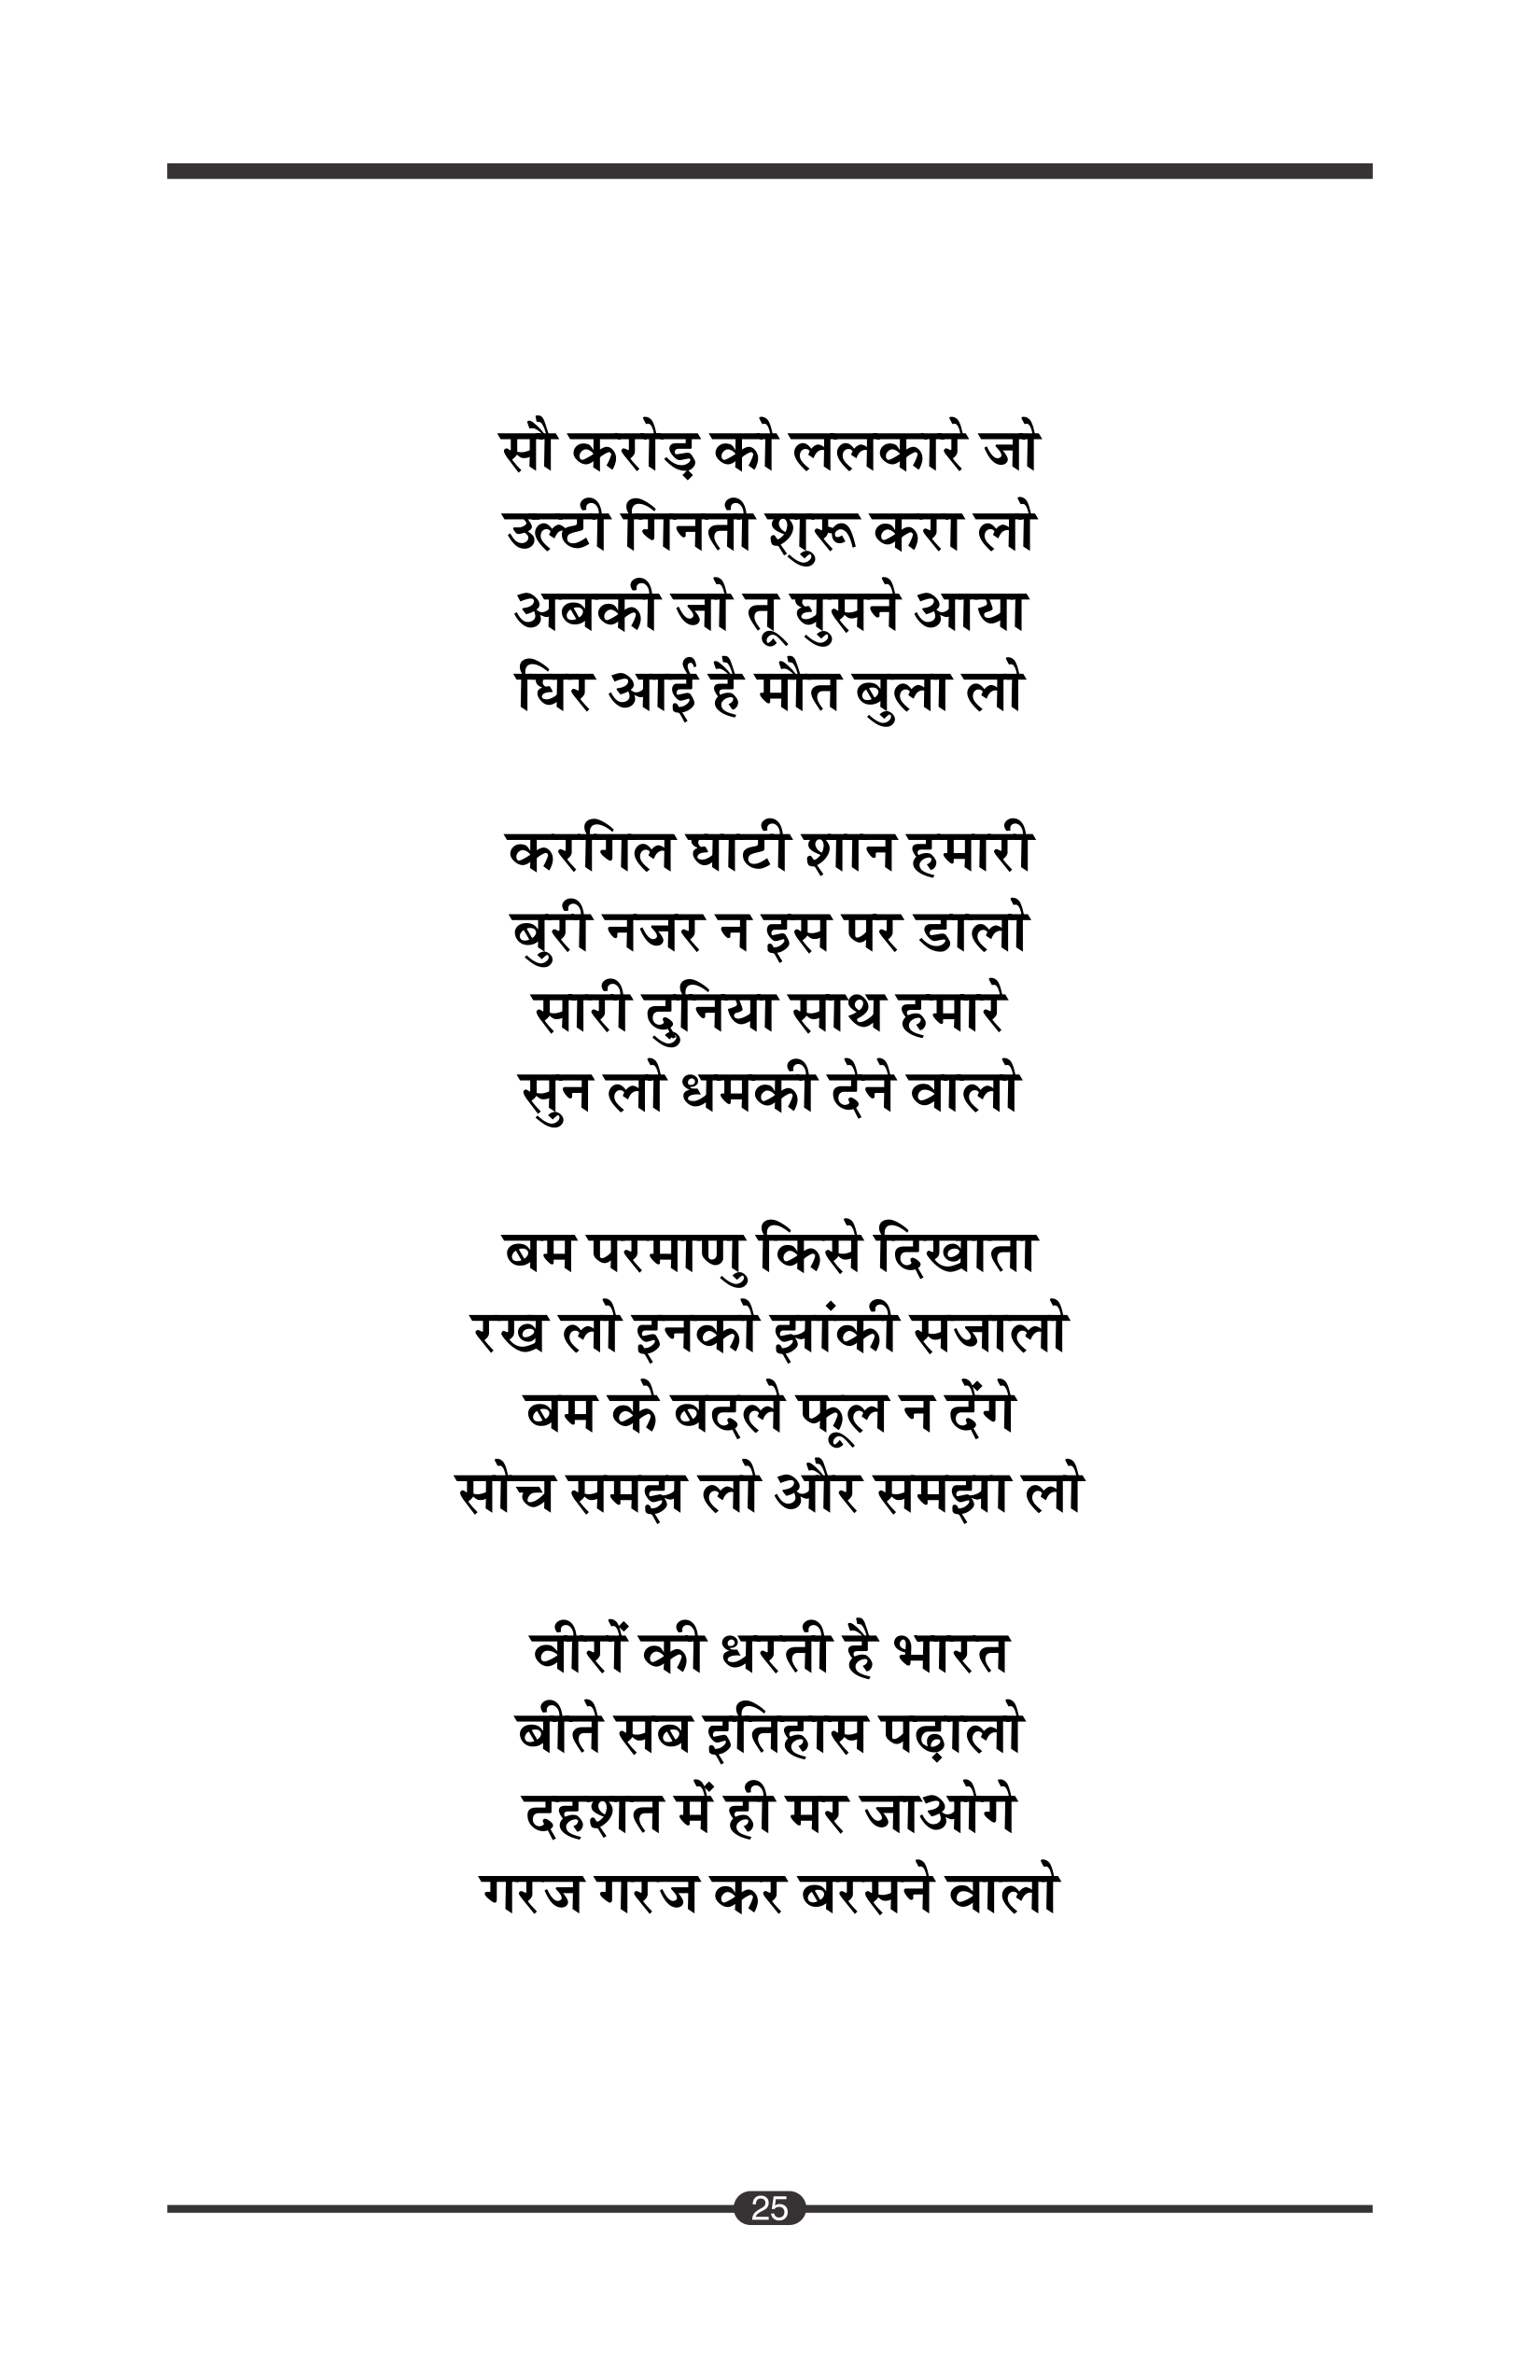 सौ करोड़ को ललकारे जो
उल्टी गिनती शुरू करा लो
अबकी जो तू घुसने आया
घिर आई है मौत बुला लो
करगिल घाटी शान हमारी
बुरी नजर न इस पर डालो
सारी दुनिया साथ हमारे
सुन लो धमकी देने वालो
बम परमाणु किसे दिखाता
रख लो इनको झांकी सजालो
बम के बदले फूल न देंगे
सोच समझ लो और समझा लो
वीरों की धरती है भारत
बीते सब इतिहास पढ़ालो
दहशत में ही मर जाओगे
गरज गरज कर बरसने वालो
25